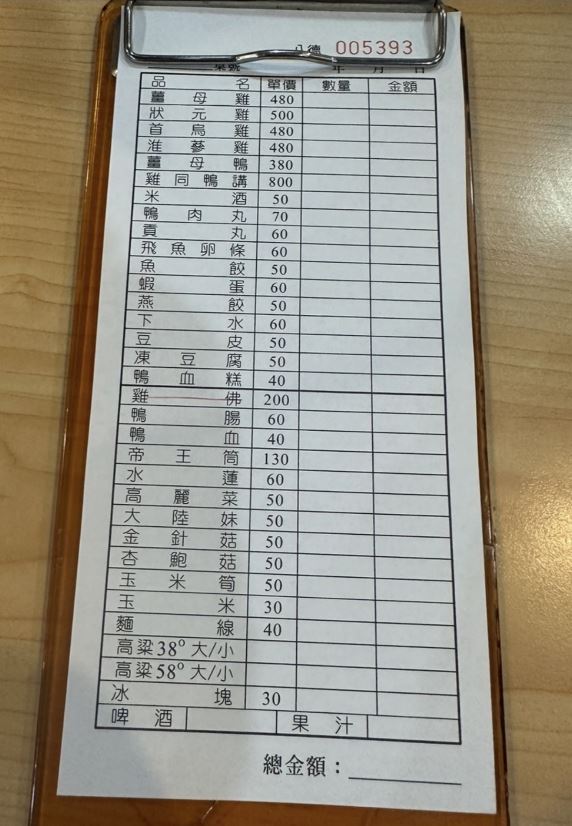 八德 005393
桌號 年 月 日
品名 單價 數量 金額
薑母雞 480
狀元雞 500
首烏雞 480
淮蔘雞 480
薑母鴨 380
雞同鴨講 800
米酒 50
鴨肉丸 70
貢丸 60
飛魚卵條 60
魚餃 50
蝦蛋 60
燕餃 50
下水 60
豆皮 50
凍豆腐 50
鴨血糕 40
雞佛 200
鴨腸 60
鴨血 40
帝王筒 130
水蓮 60
高麗菜 50
大陸妹 50
金針菇 50
杏鮑菇 50
玉米筍 50
玉米 30
麵線 40
高粱38° 大/小
高粱58° 大/小
冰塊 30
啤酒 果汁
總金額：